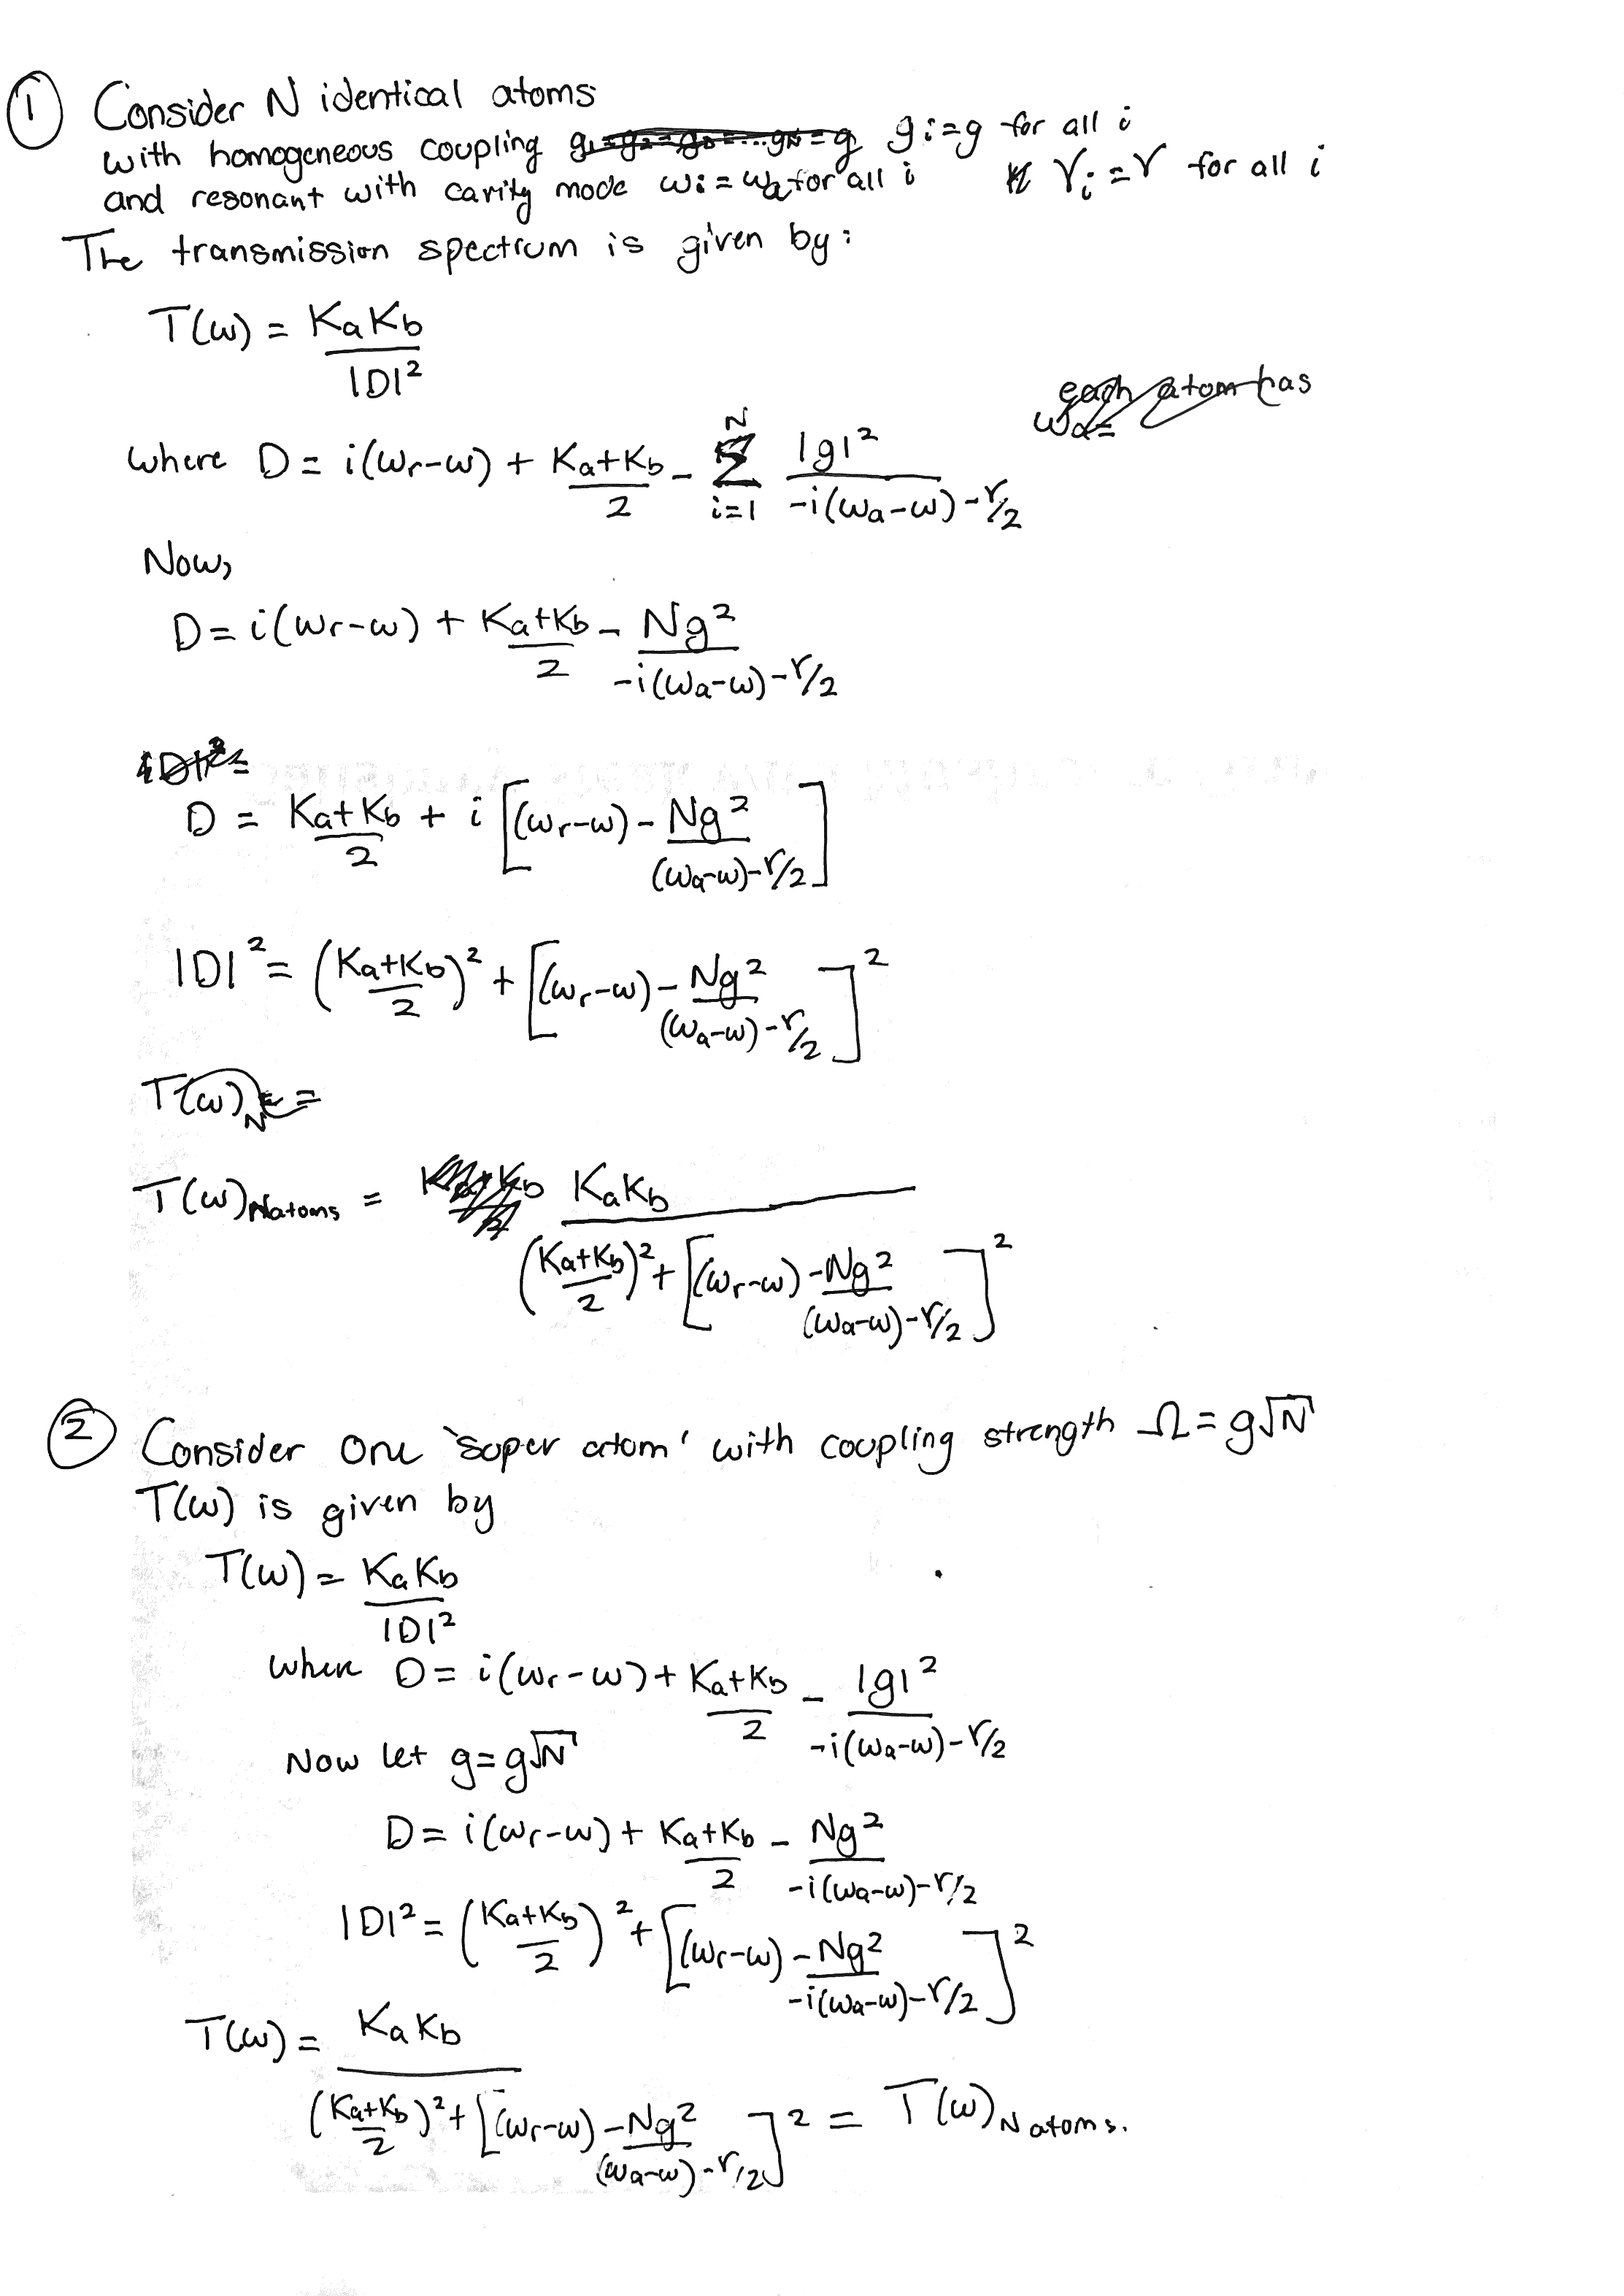 ① Consider N identical atoms
with homogeneous coupling g₁=g₂=g₃=...gN=g gi=g for all i
and resonant with cavity mode ωi=ωa for all i γi=γ for all i
The transmission spectrum is given by:
T(ω) = KaKb / |D|²
each atom has
ωa=
where D = i(ωr-ω) + (Ka+Kb)/2 - Σ_{i=1}^{N} |g|² / (-i(ωa-ω)-γ/2)
Now,
D = i(ωr-ω) + (Ka+Kb)/2 - Ng² / (-i(ωa-ω)-γ/2)
|D|²=
D = (Ka+Kb)/2 + i[(ωr-ω) - Ng² / ((ωa-ω)-γ/2)]
|D|² = ((Ka+Kb)/2)² + [(ωr-ω) - Ng² / ((ωa-ω)-γ/2)]²
T(ω)N =
T(ω)N atoms = KaKb / (((Ka+Kb)/2)² + [(ωr-ω) - Ng² / ((ωa-ω)-γ/2)]²)
② Consider one 'super atom' with coupling strength Ω = g√N
T(ω) is given by
T(ω) = KaKb / |D|²
where D = i(ωr-ω) + (Ka+Kb)/2 - |g|² / (-i(ωa-ω)-γ/2)
Now let g=g√N
D = i(ωr-ω) + (Ka+Kb)/2 - Ng² / (-i(ωa-ω)-γ/2)
|D|² = ((Ka+Kb)/2)² + [(ωr-ω) - Ng² / (-i(ωa-ω)-γ/2)]²
T(ω) = KaKb / (((Ka+Kb)/2)² + [(ωr-ω) - Ng² / ((ωa-ω)-γ/2)]²) = T(ω)N atoms.